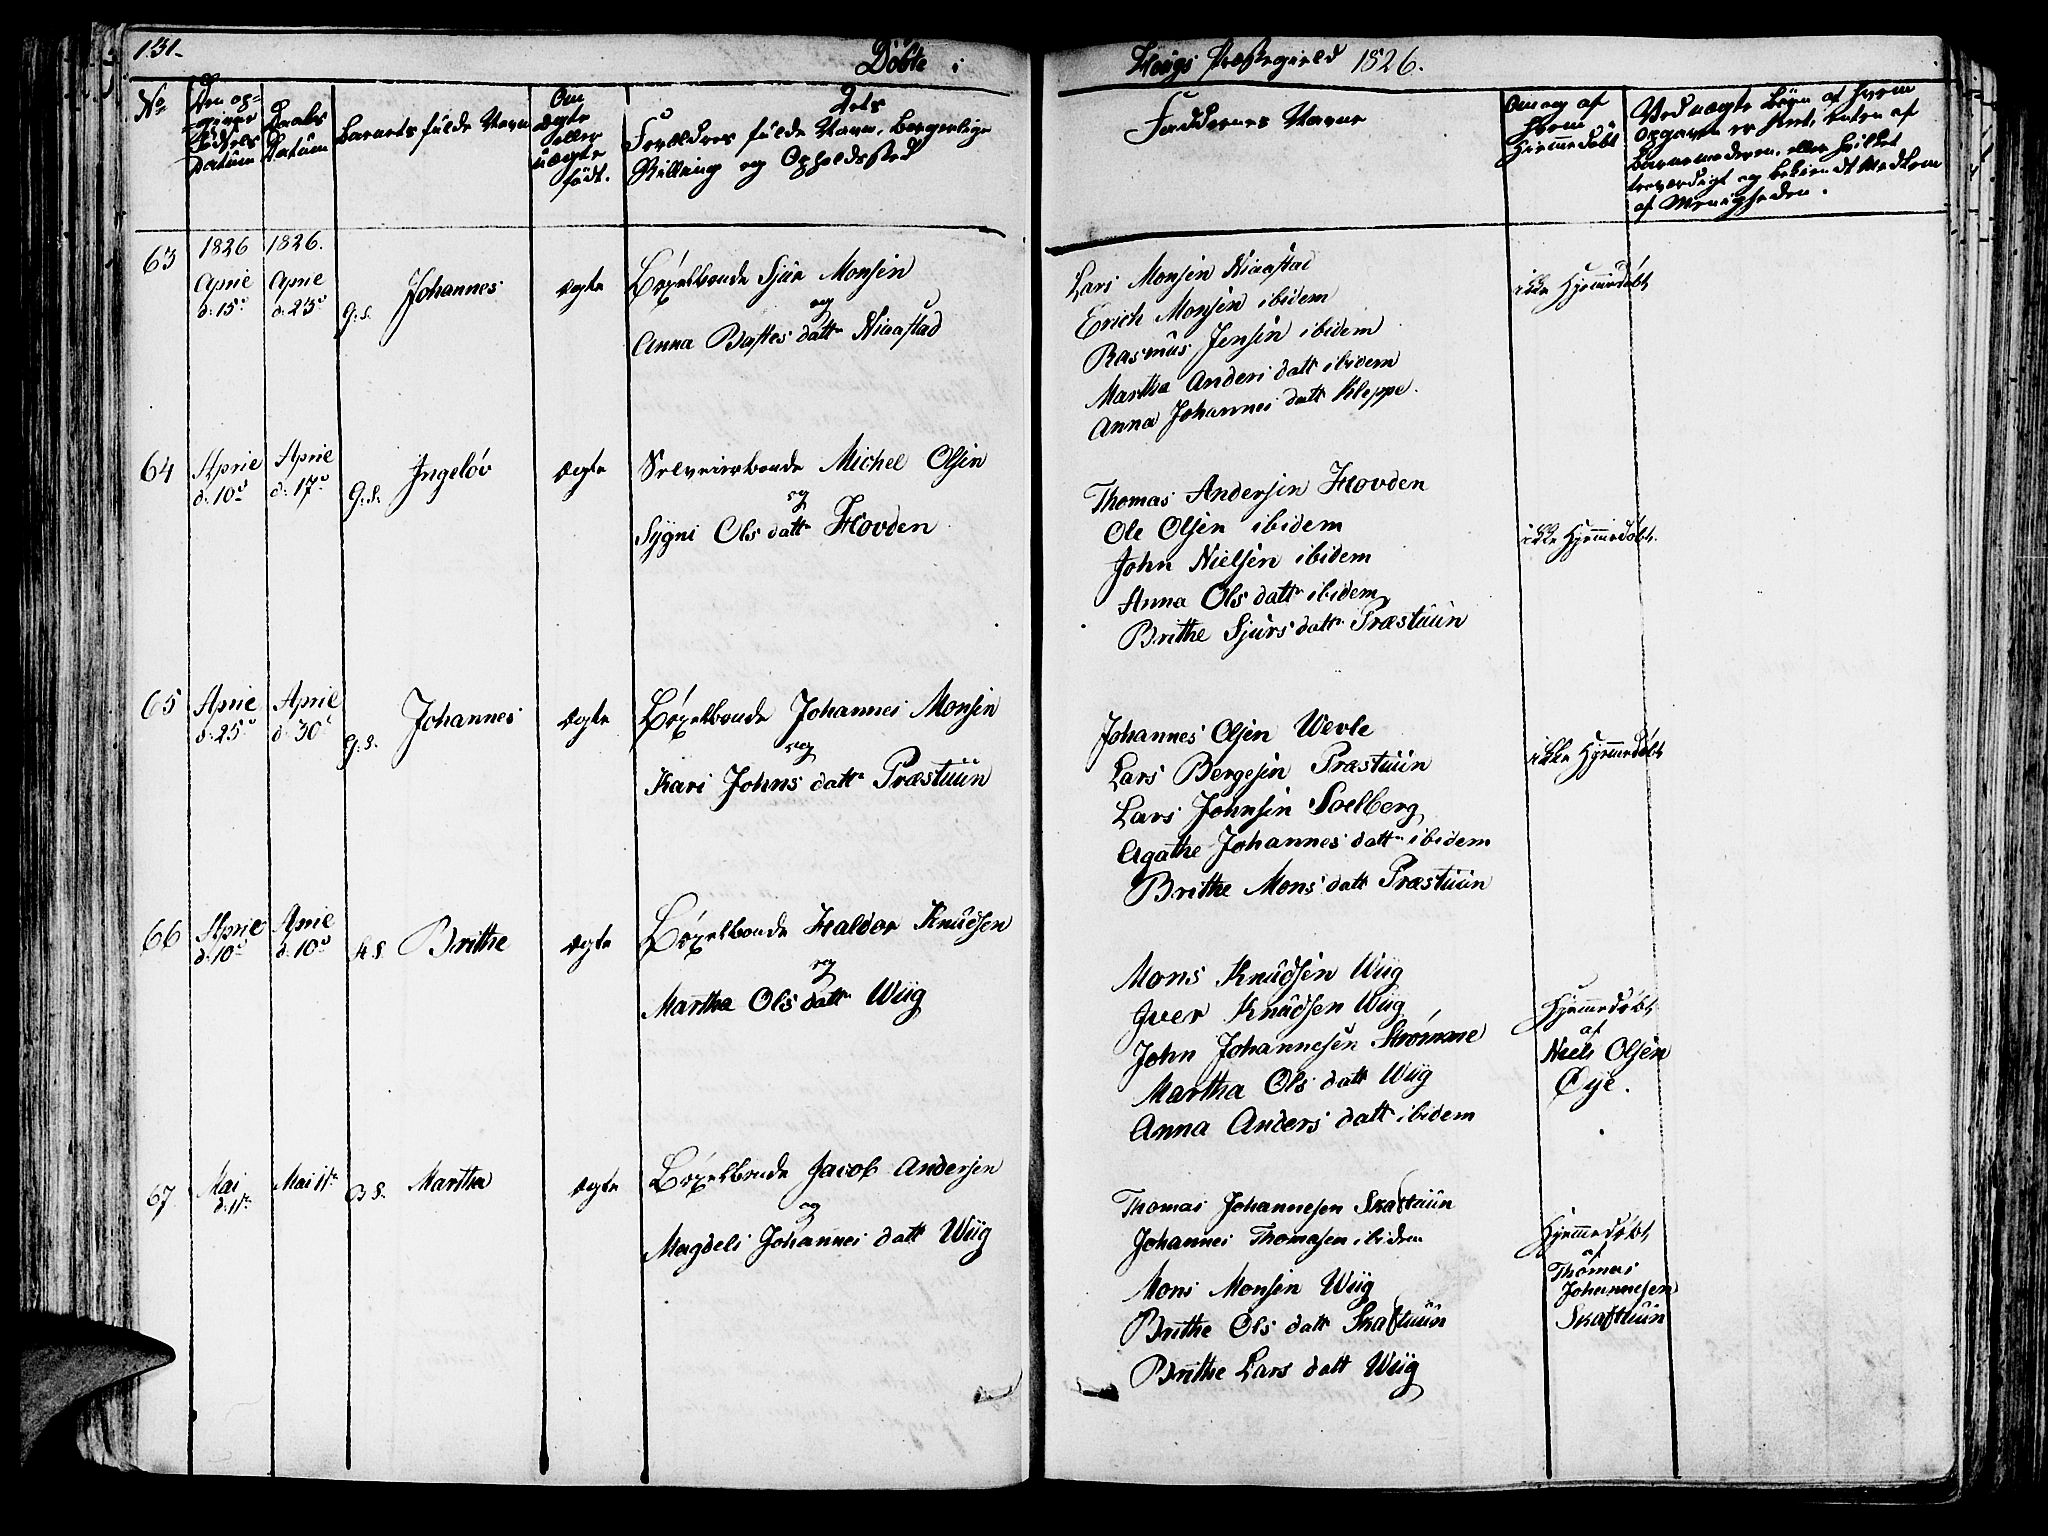 131.
Döbte i
Hougs Præstegield 1826.
No
Den op-
givne
Födsels
Datum
Daabs
Datum
Barnets fulde Navn
Om
ægte
eller
uægte
födt.
Dets
Forældres fulde Navn, borgerlige
Stilling og Opholdssted
Faddernes Navne
Om og af
hvem
hiemmedöbt
Ved uægte Börn af hvem
Opgaven er skeet, enten af
Barnemoderen, eller hvilket
troværdigt og bekiendt Medlem
af Menigheden.
63
1826
Aprie
d: 15d
1826.
Aprie
d: 23d
G. S.
Johannes
ægte
Böxelbonde Sjur Monsen
og
Anna Bastes datt Niaastad
Lars Monsen Niaastad
Erich Monsen ibidem
Rasmus Jensen ibidem
Martha Anders datt ibidem
Anna Johannes datt Kleppe.
ikke Hjemmedöbt
64
Aprie
d: 10d
Aprie
d: 17d
G. S.
Ingelöv
ægte
Selveierbonde Michel Olsen
og
Sygni Ols datt Hovden
Thomas Andersen Hovden
Ole Olsen ibidem
John Nielsen ibidem
Anna Ols datt ibidem
Brithe Sjurs datt Præstuün
ikke Hjemmedöbt.
65
Aprie
d: 25d
April
d: 30d
G. S.
Johannes
ægte
Böxelbonde Johannes Monsen
og
Kari Johns datt Præstuün
Johannes Olsen Wevle
Lars Bergesen Præstuün
Lars Johnsen Soelberg
Agathe Johannes datt ibidem
Brithe Mons datt Præstuün
ikke Hjemmedöbt
66
Aprie
d: 10d
Aprie
d: 10d
H. S.
Brithe
ægte
Böxelbonde Haldor Knudsen
og
Martha Ols datt Wiig
Mons Knudsen Wiig
Iver Knudsen Wiig
John Johannesen Strömme
Martha Ols datt Wiig
Anna Anders datt ibidem
Hjemmedöbt
af
Niels Olsen
Öye.
67
Mai
d: 1ste
Mai 1ste
B S.
Martha
ægte
Böxelbonde Jacob Andersen
og
Magdeli Johannes datt Wiig
Thomas Johannesen Skaftuün
Johannes Thomasen ibidem
Mons Monsen Wiig
Brithe Ols datt Skaftuün
Brithe Lars datt Wiig
Hjemmedöbt
af
Thomas
Johannesen
Skaftuün